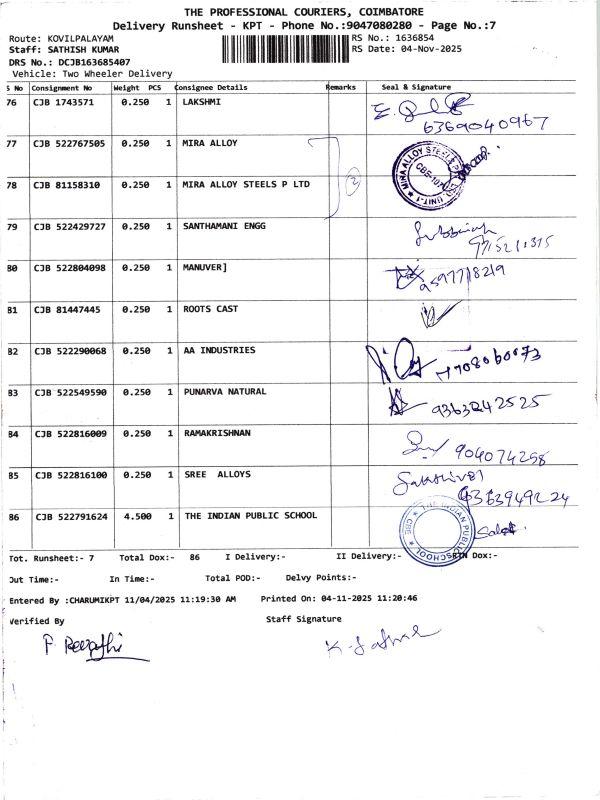 THE PROFESSIONAL COURIERS, COIMBATORE
Delivery Runsheet - KPT - Phone No.:9047080280 - Page No.:7
Route: KOVILPALAYAM RS No.: 1636854
Staff: SATHISH KUMAR RS Date: 04-Nov-2025
DRS No.: DCJB163685407
Vehicle: Two Wheeler Delivery
S No Consignment No Weight PCS Consignee Details Remarks Seal & Signature
76 CJB 1743571 0.250 1 LAKSHMI
6369040967
77 CJB 522767505 0.250 1 MIRA ALLOY
78 CJB 81158310 0.250 1 MIRA ALLOY STEELS P LTD 2
79 CJB 522429727 0.250 1 SANTHAMANI ENGG
80 CJB 522804098 0.250 1 MANUVER]
81 CJB 81447445 0.250 1 ROOTS CAST
82 CJB 522290068 0.250 1 AA INDUSTRIES
83 CJB 522549590 0.250 1 PUNARVA NATURAL
9363242525
84 CJB 522816009 0.250 1 RAMAKRISHNAN
904074298
85 CJB 522816100 0.250 1 SREE ALLOYS
86 CJB 522791624 4.500 1 THE INDIAN PUBLIC SCHOOL
THE INDIAN PUBLIC SCHOOL CBE
Tot. Runsheet:- 7 Total Dox:- 86 I Delivery:- II Delivery:- RTN Dox:-
Out Time:- In Time:- Total POD:- Delvy Points:-
Entered By :CHARUMIKPT 11/04/2025 11:19:30 AM Printed On: 04-11-2025 11:20:46
Verified By Staff Signature